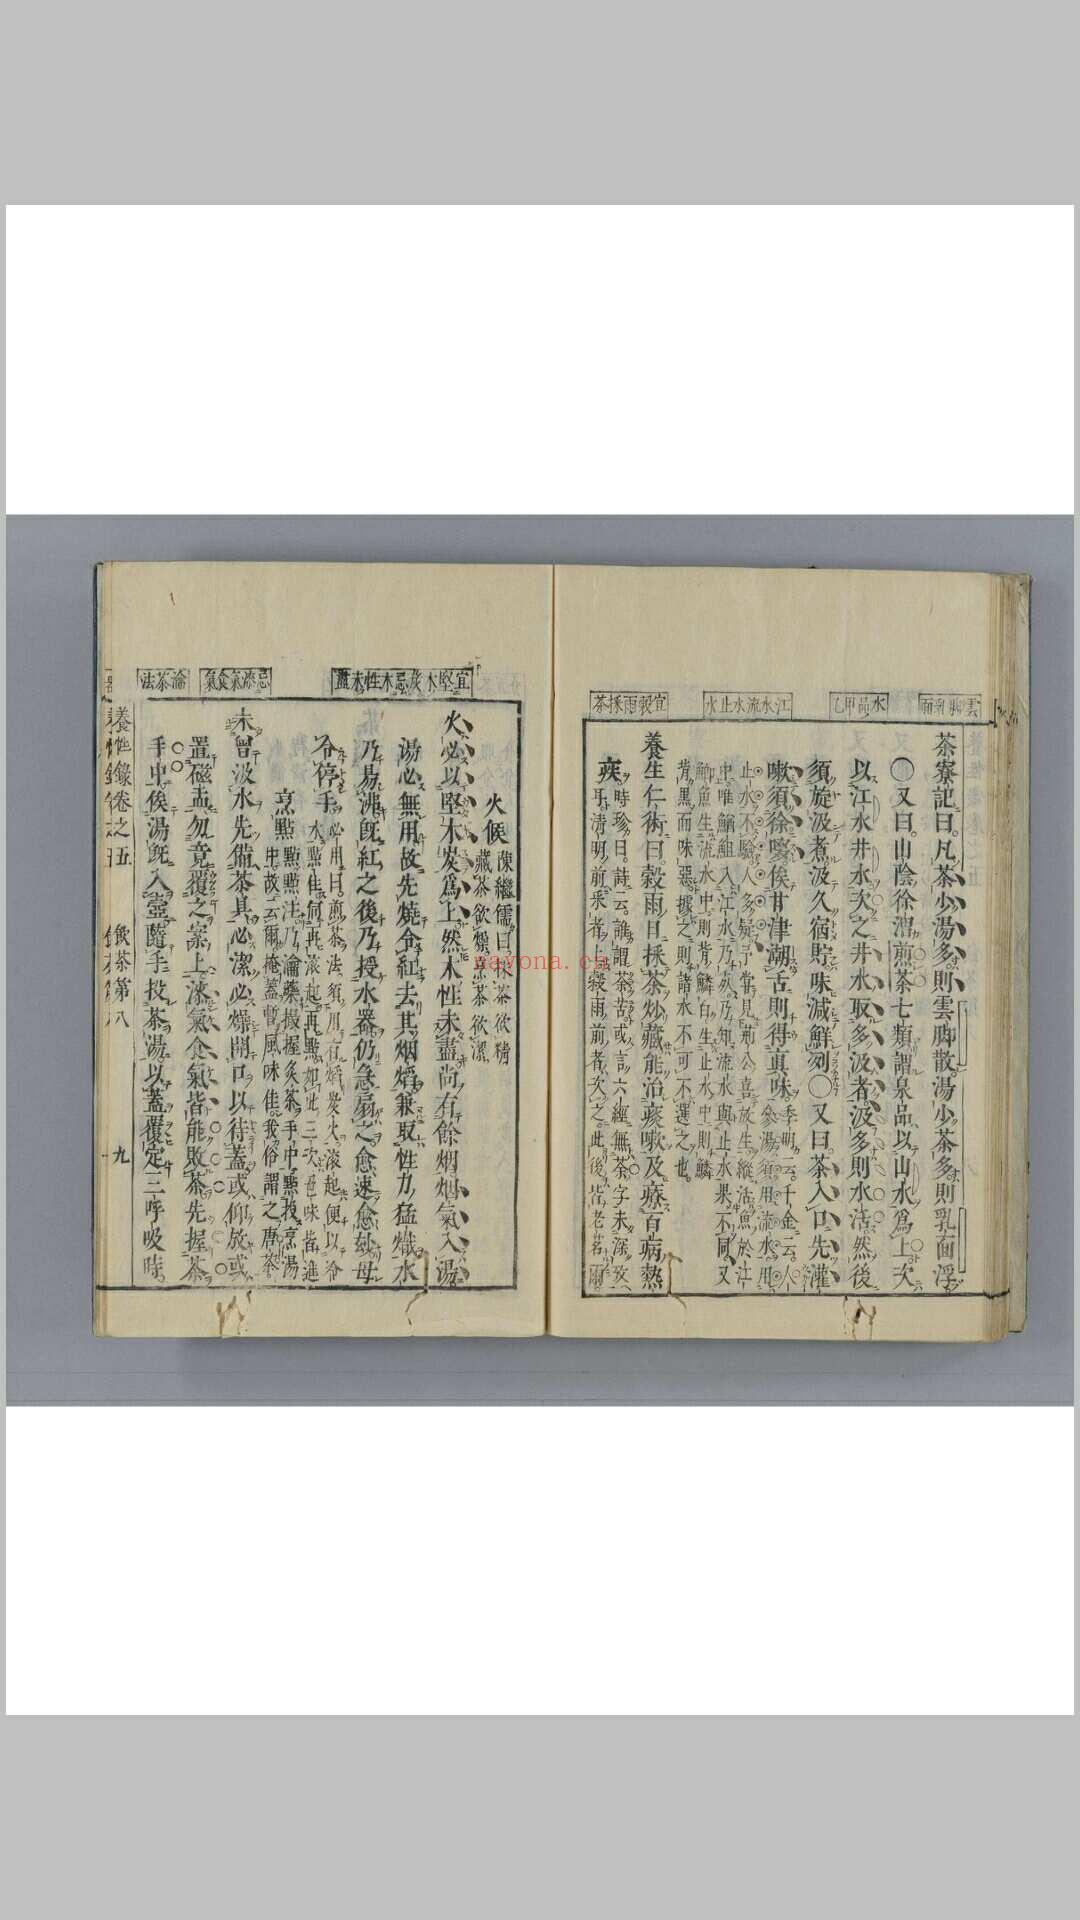 雲脚乳面
水品甲乙
江水流水止水
宜穀雨採茶
茶寮記曰凡茶少湯多則雲脚散湯少茶多則乳面浮
〇又曰山陰徐渭煎茶七類謂泉品以山水爲上次
以江水井水次之井水取多汲者汲多則水活然後
須旋汲煮汲久宿貯味減鮮冽〇又曰茶入口先灌
嗽須徐啜俟甘津潮舌則得真味季明云千金云人
參湯須用流水用
止水不驗人多疑予嘗見荊公喜放生縱活魚於江
中唯鰌鮋入江水乃死乃知流水與止水果不同又
鯽魚生流水中則背鱗白生止水中則鱗
背黒而味惡據之則諸水不可不選之也
養生仁術曰穀雨日採茶炒藏能治痰嗽及療百病熱
疾時珍曰詩云誰謂茶苦或言六經無茶字未深攷
耳清明前采者上穀雨前者次之此後皆老茗爾
宜堅木炭忌木性未盡
忌漆氣食氣
瀹茶法
火候陳繼儒曰採茶欲精
藏茶欲燥烹茶欲潔
火必以堅木炭爲上然木性未盡尚有餘烟烟氣入湯
湯必無用故先燒令紅去其烟焰兼取性力猛熾水
乃易沸既紅之後乃授水器仍急扇之愈速愈玅母
令停手必用曰煎茶法須用有焰炭火滚起便以冷
水點住伺再滚起再點如此三次色味皆進
烹點點點注乃瀹藥撮握灸茶手中點投烹湯
中故云爾掩蓋暫風味佳我俗謂之唐茶
未曾汲水先備茶具必潔必燥開口以待蓋或仰放或
置磁盂勿竟覆之案上漆氣食氣皆能敗茶先握茶
手中俟湯既入壺隨手投茶湯以蓋覆定三呼吸時
養性錄卷之五
飲茶第八
九
nayona.cn